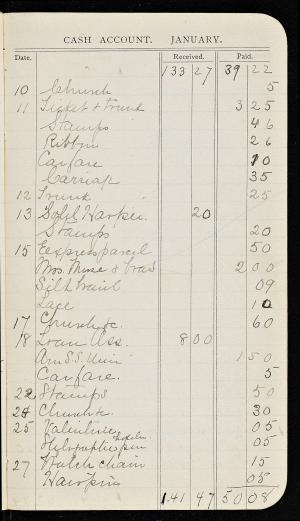 CASH ACCOUNT. JANUARY.
Date. Received. Paid.
133 27 39 22
10 Church 5
11 Ticket & trunk 3 25
Stamps 46
Ribbon 26
Carfare 10
Carriage 35
12 Trunk 25
13 Sold Harper. 20
Stamps 20
15 Express parcel 50
Mrs. Muse & 2 00
Silk braid 09
Lace 10
17 Church &c. 60
18 Loan Ass. 8 00
Am S. S. Union 1 50
Carfare. 5
22 Stamps 50
24 Church &c. 30
25 Valentine 05
pin 05
27 Watch chain 15
Hairpins 05
141 47 50 08